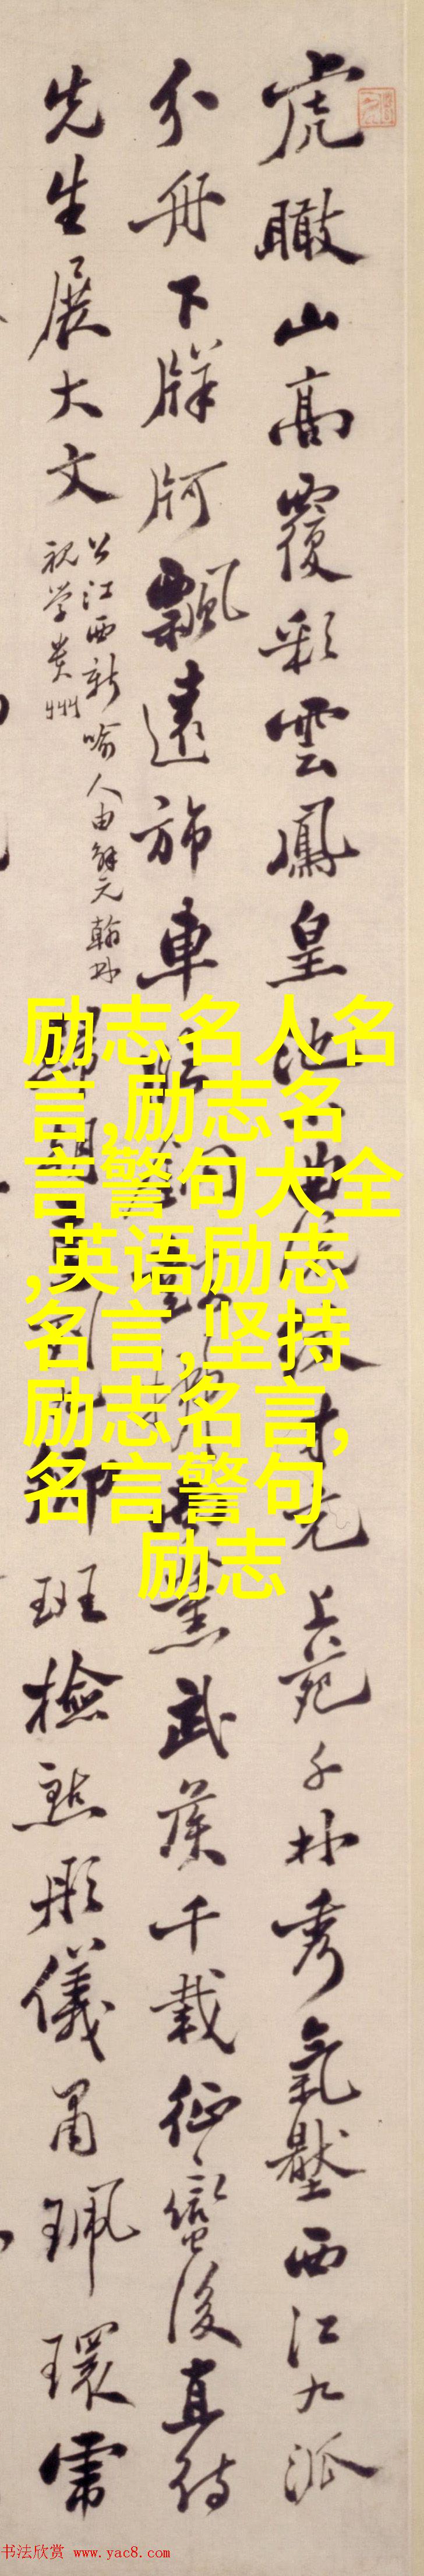 虎瞰山高覆彩雲鳳皇池
上苑千林秀氣壓西江九派
分丹下牂牁飄遠旆車
武侯千載征蠻後直待
先生展大文
公江西新喻人由解元翰林
視学貴州
班檢點彤儀肅珮環需
励志名人名
言,励志名
言警句大全
,英语励志
名言,坚持
励志名言,
名言警句
励志
书法欣赏 www.yac8.com